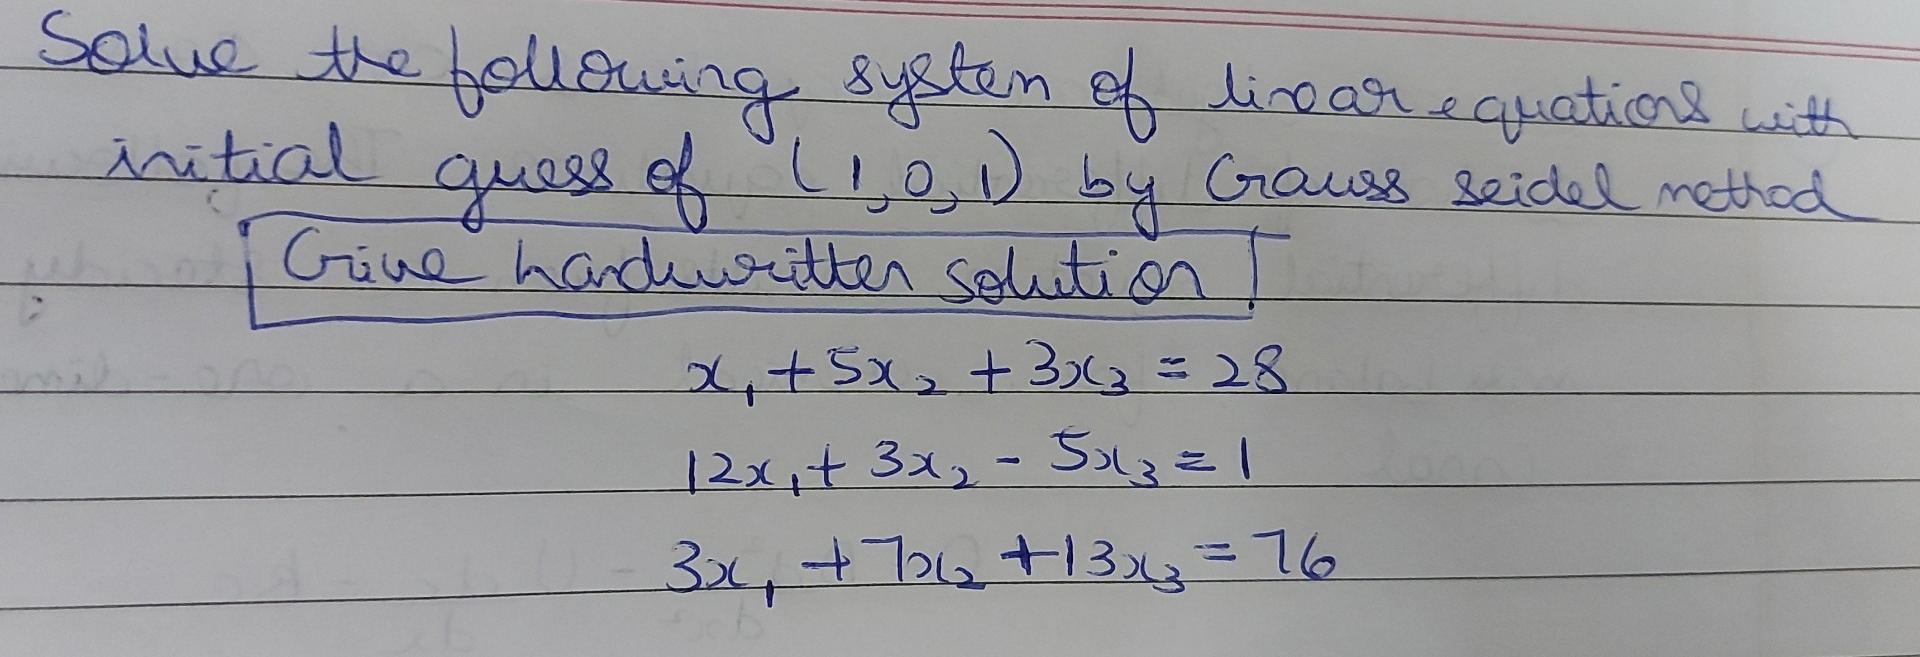 Solve the following system of linear equations with
initial guess of (1,0,1) by Gauss seidel method
Give handwritten solution
x₁ + 5x₂ + 3x₃ = 28
12x₁ + 3x₂ - 5x₃ = 1
3x₁ + 7x₂ + 13x₃ = 76